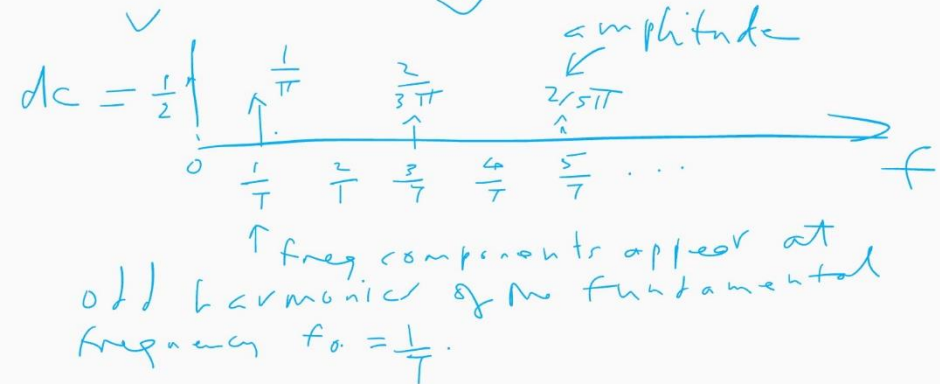 amplitude
dc = 1/2 1/π 2/3π 2/5π
0 1/T 2/T 3/T 4/T 5/T ... f
↑ freq components appear at
odd harmonics of the fundamental
frequency f₀ = 1/T.